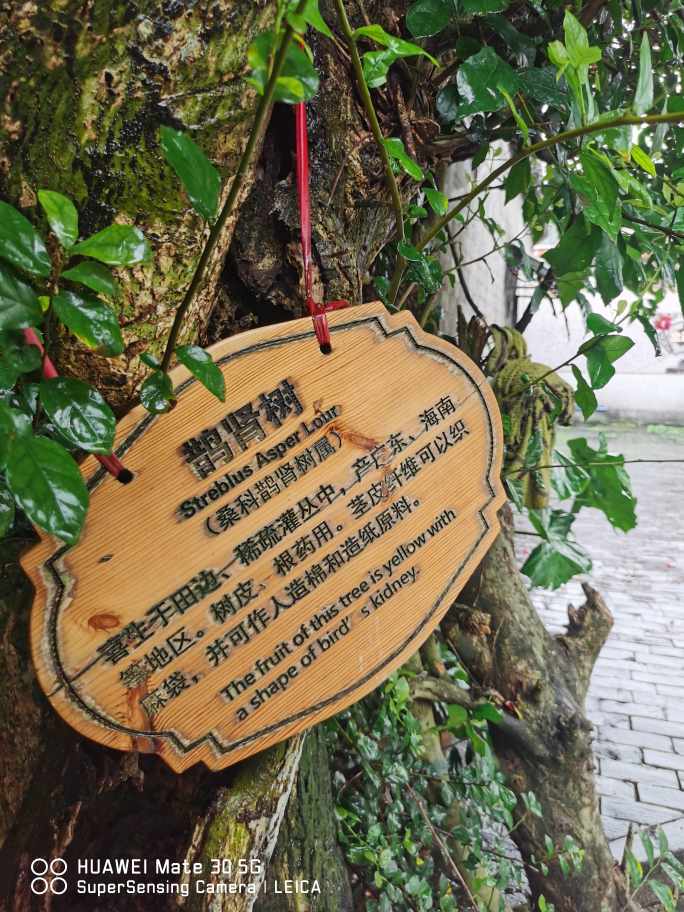 鹊肾树
Streblus Asper Lour
（桑科鹊肾树属）
喜生于田边、稀疏灌丛中，产广东、海南
等地区。树皮、根药用。茎皮纤维可以织
麻袋，并可作人造棉和造纸原料。
The fruit of this tree is yellow with
a shape of bird's kidney.
HUAWEI Mate 30 5G
SuperSensing Camera | LEICA